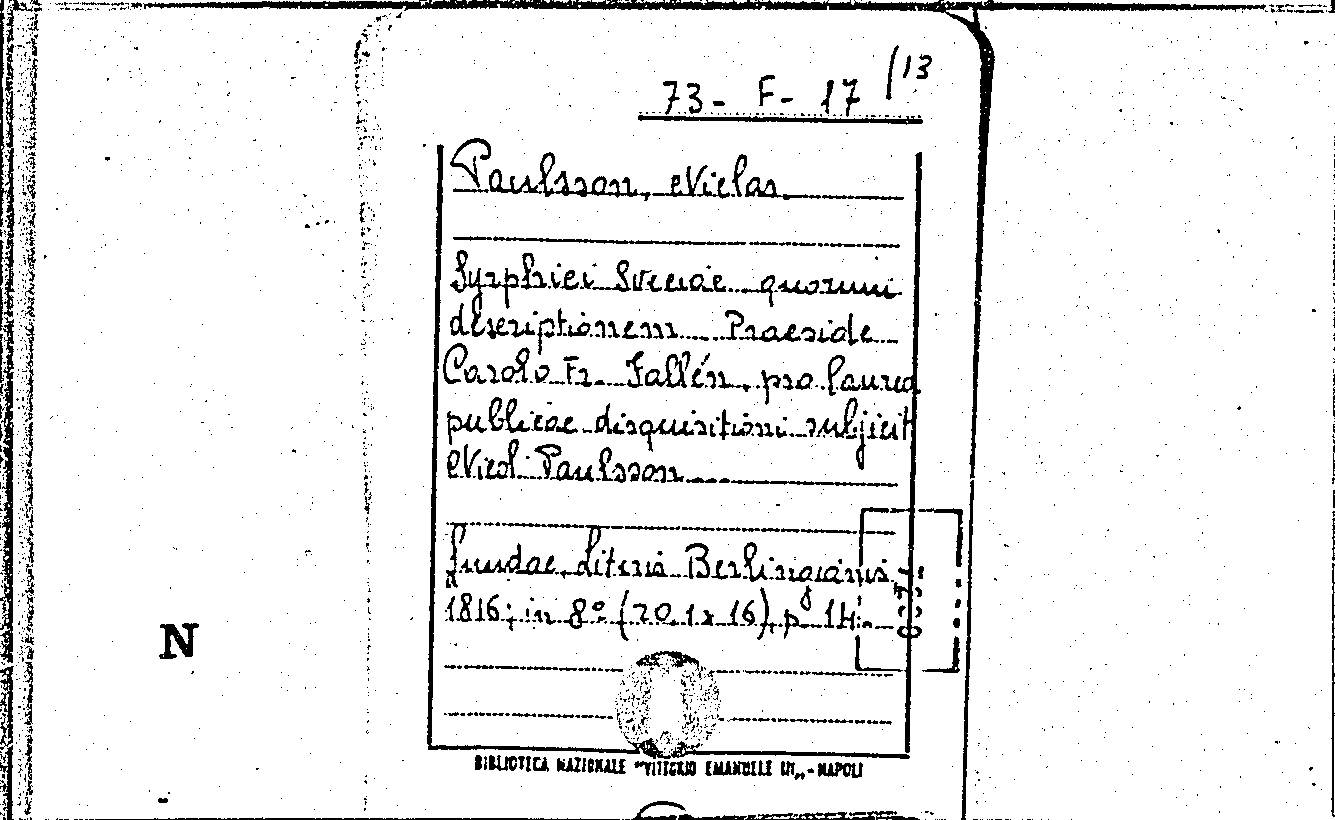 73- F- 17 /13
Paulsson, Niclas.
Syrphici Sveciae quorum
descriptionem Praeside
Carolo Fr. Fallén, pro laurea
publicae disquisitioni subjicit
Nicol Paulsson
Lundae, Literis Berlingianis,
1816; in 8° (20,1x16), p 14.
N
BIBLIOTECA NAZIONALE "VITTORIO EMANUELE III„ - NAPOLI